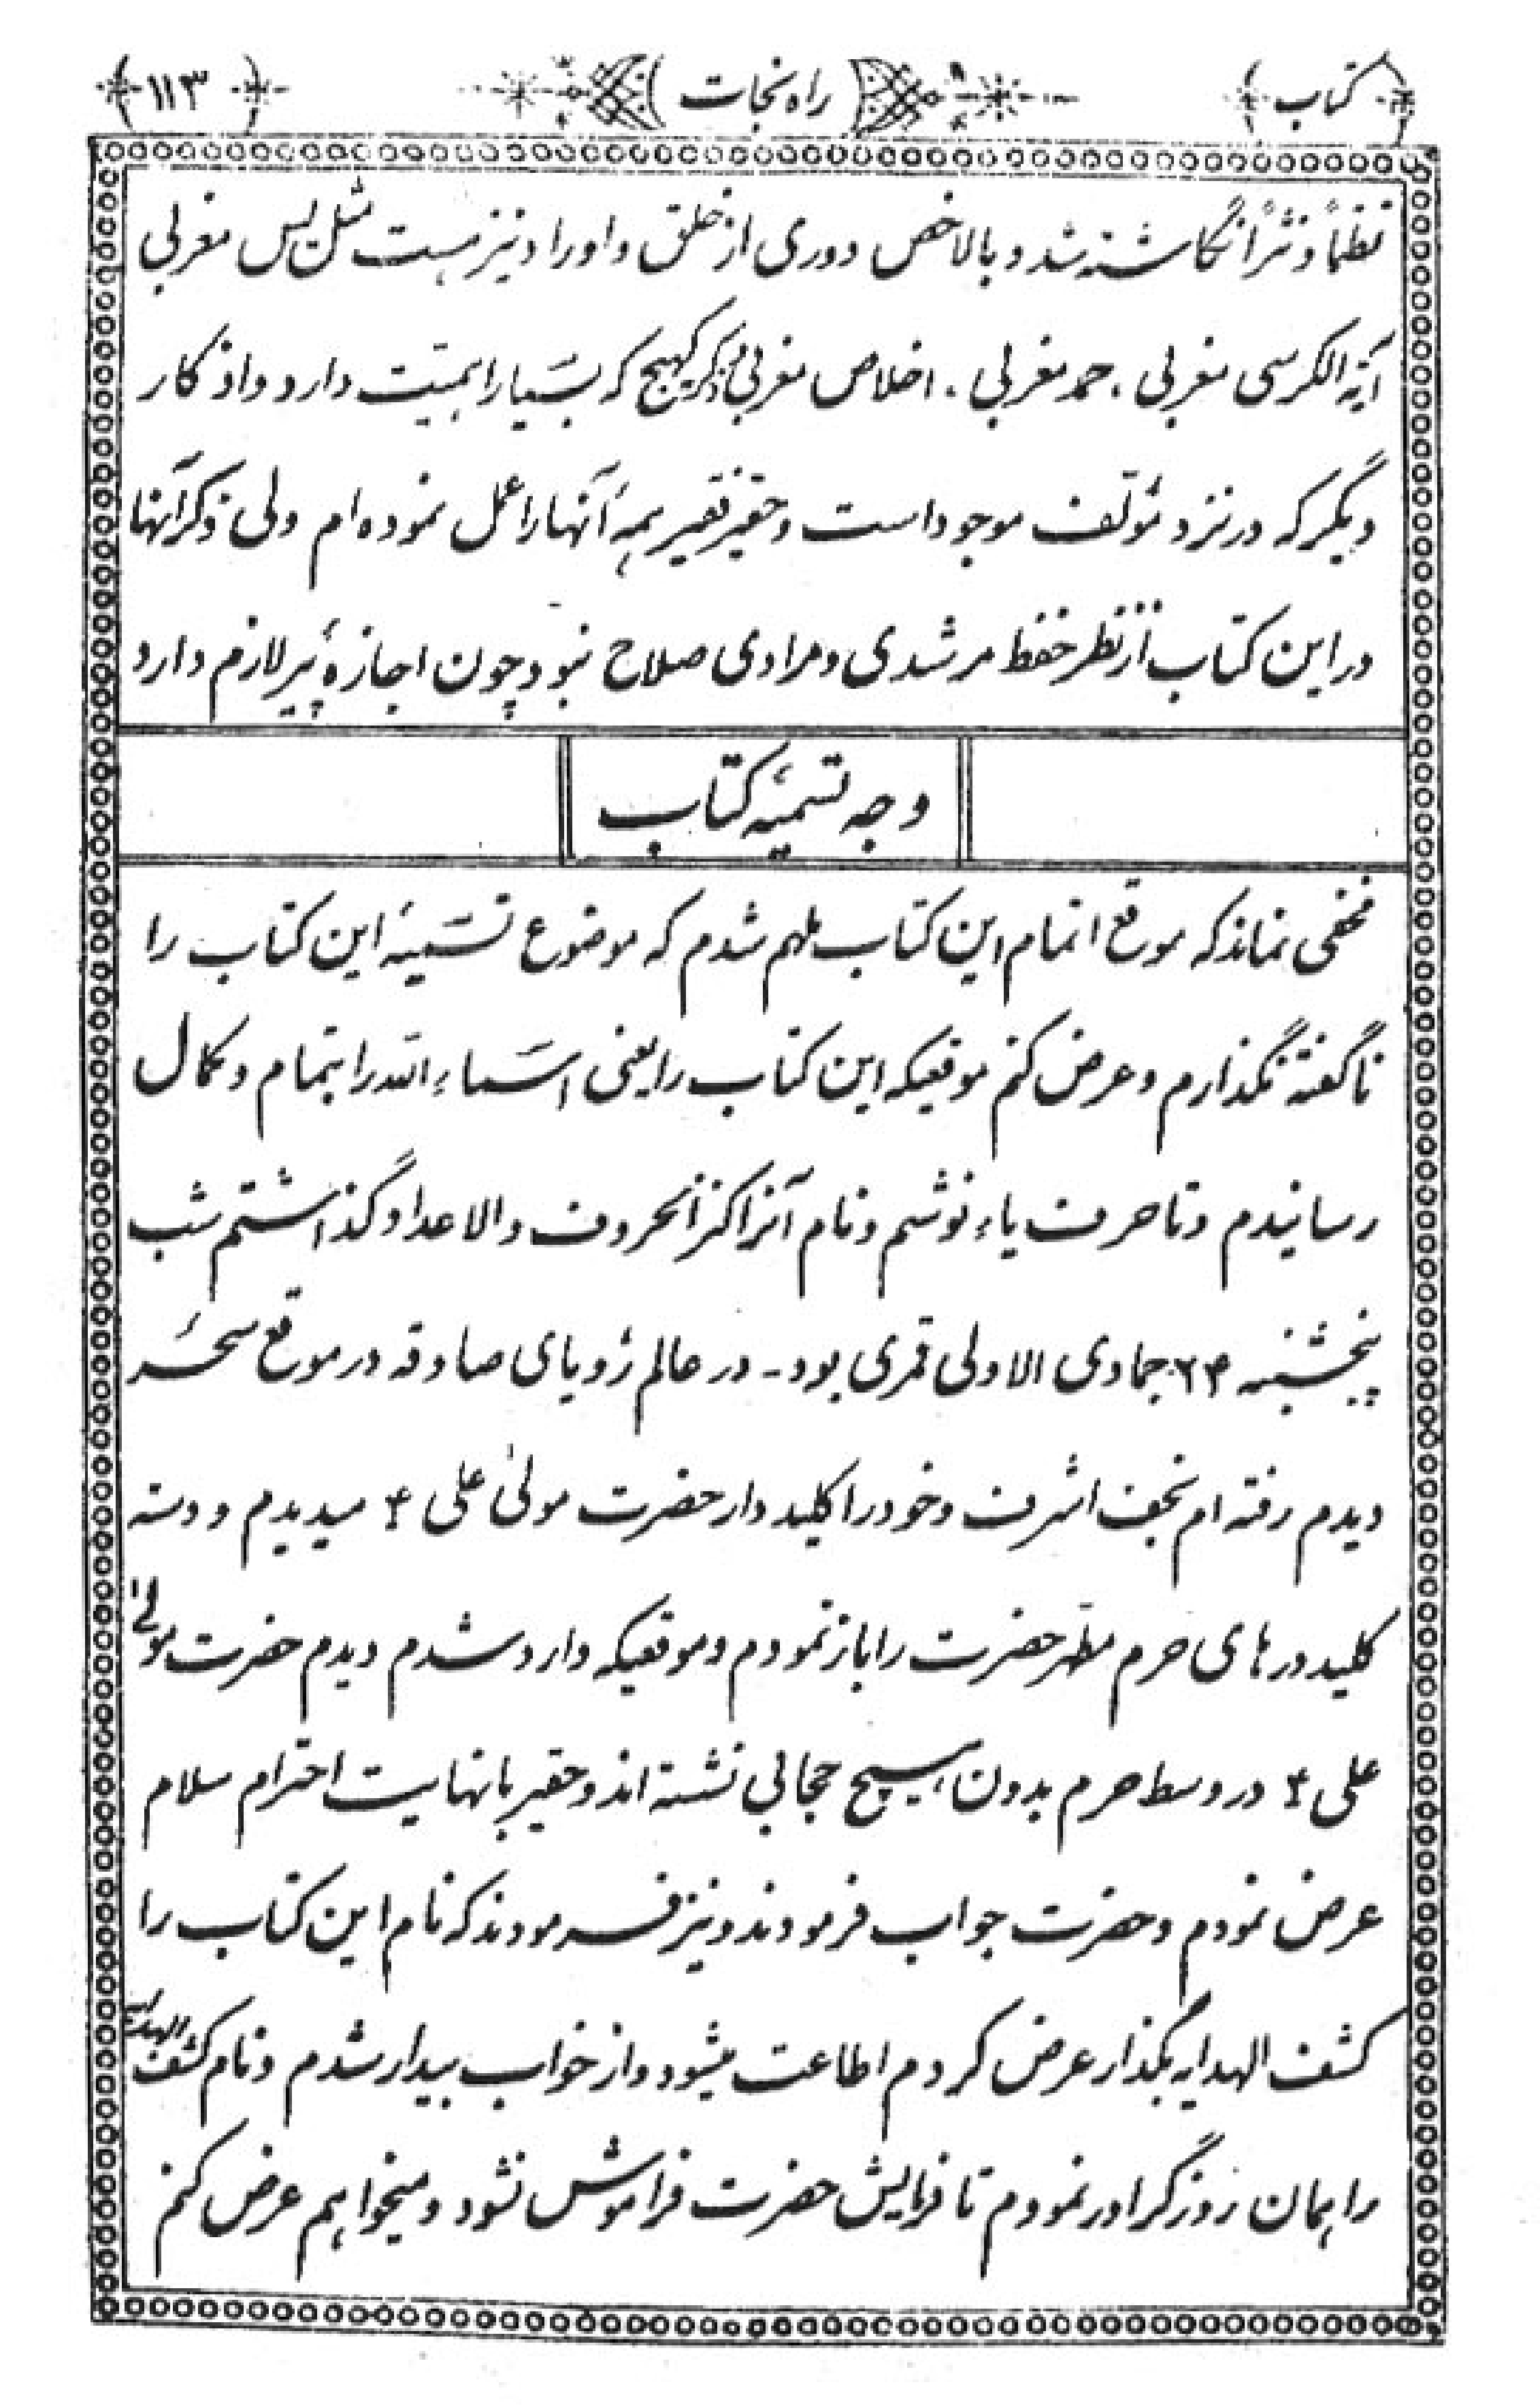 کتاب راه نجات ۱۱۳
نظماً و نثراً نگاشته شد و بالاخص دوری از خلق و اوراد نیز هست مثل یس مغربی
آیة الکرسی مغربی ، حمد مغربی ، اخلاص مغربی ذکر کهیج که بسیار اهمیّت دارد و اذکار
دیگر که در نزد مؤلف موجود است و حقیر فقیر همهٔ آنها را عمل نموده ام ولی ذکر آنها
در این کتاب از نظر حفظ مرشدی و مرادی صلاح نبود چون اجازهٔ پیر لازم دارد
وجه تسمیهٔ کتاب
مخفی نماند که موقع اتمام این کتاب ملهم شدم که موضوع تسمیهٔ این کتاب را
ناگفته نگذارم و عرض کنم موقعیکه این کتاب را یعنی اسماء الله را بتمام و کمال
رسانیدم و تا حرف یاء نوشتم و نام آنرا کنز الحروف والاعداد گذاشتم شب
پنجشنبه ۶۴ جمادی الاولی قمری بود - در عالم رؤیای صادقه در موقع سحر
دیدم رفته ام نجف اشرف و خود را کلید دار حضرت مولیٰ علی ع میدیدم و دسته
کلید درهای حرم مطهر حضرت را باز نمودم و موقعیکه وارد شدم دیدم حضرت مولیٰ
علی ع در وسط حرم بدون هیچ حجابی نشسته اند و حقیر با نهایت احترام سلام
عرض نمودم و حضرت جواب فرمودند و نیز فرمودند که نام این کتاب را
کشف الهدایه بگذار عرض کردم اطاعت میشود و از خواب بیدار شدم و نام کشف الهدایه
را همان روز گراور نمودم تا فرمایش حضرت فراموش نشود و میخواهم عرض کنم